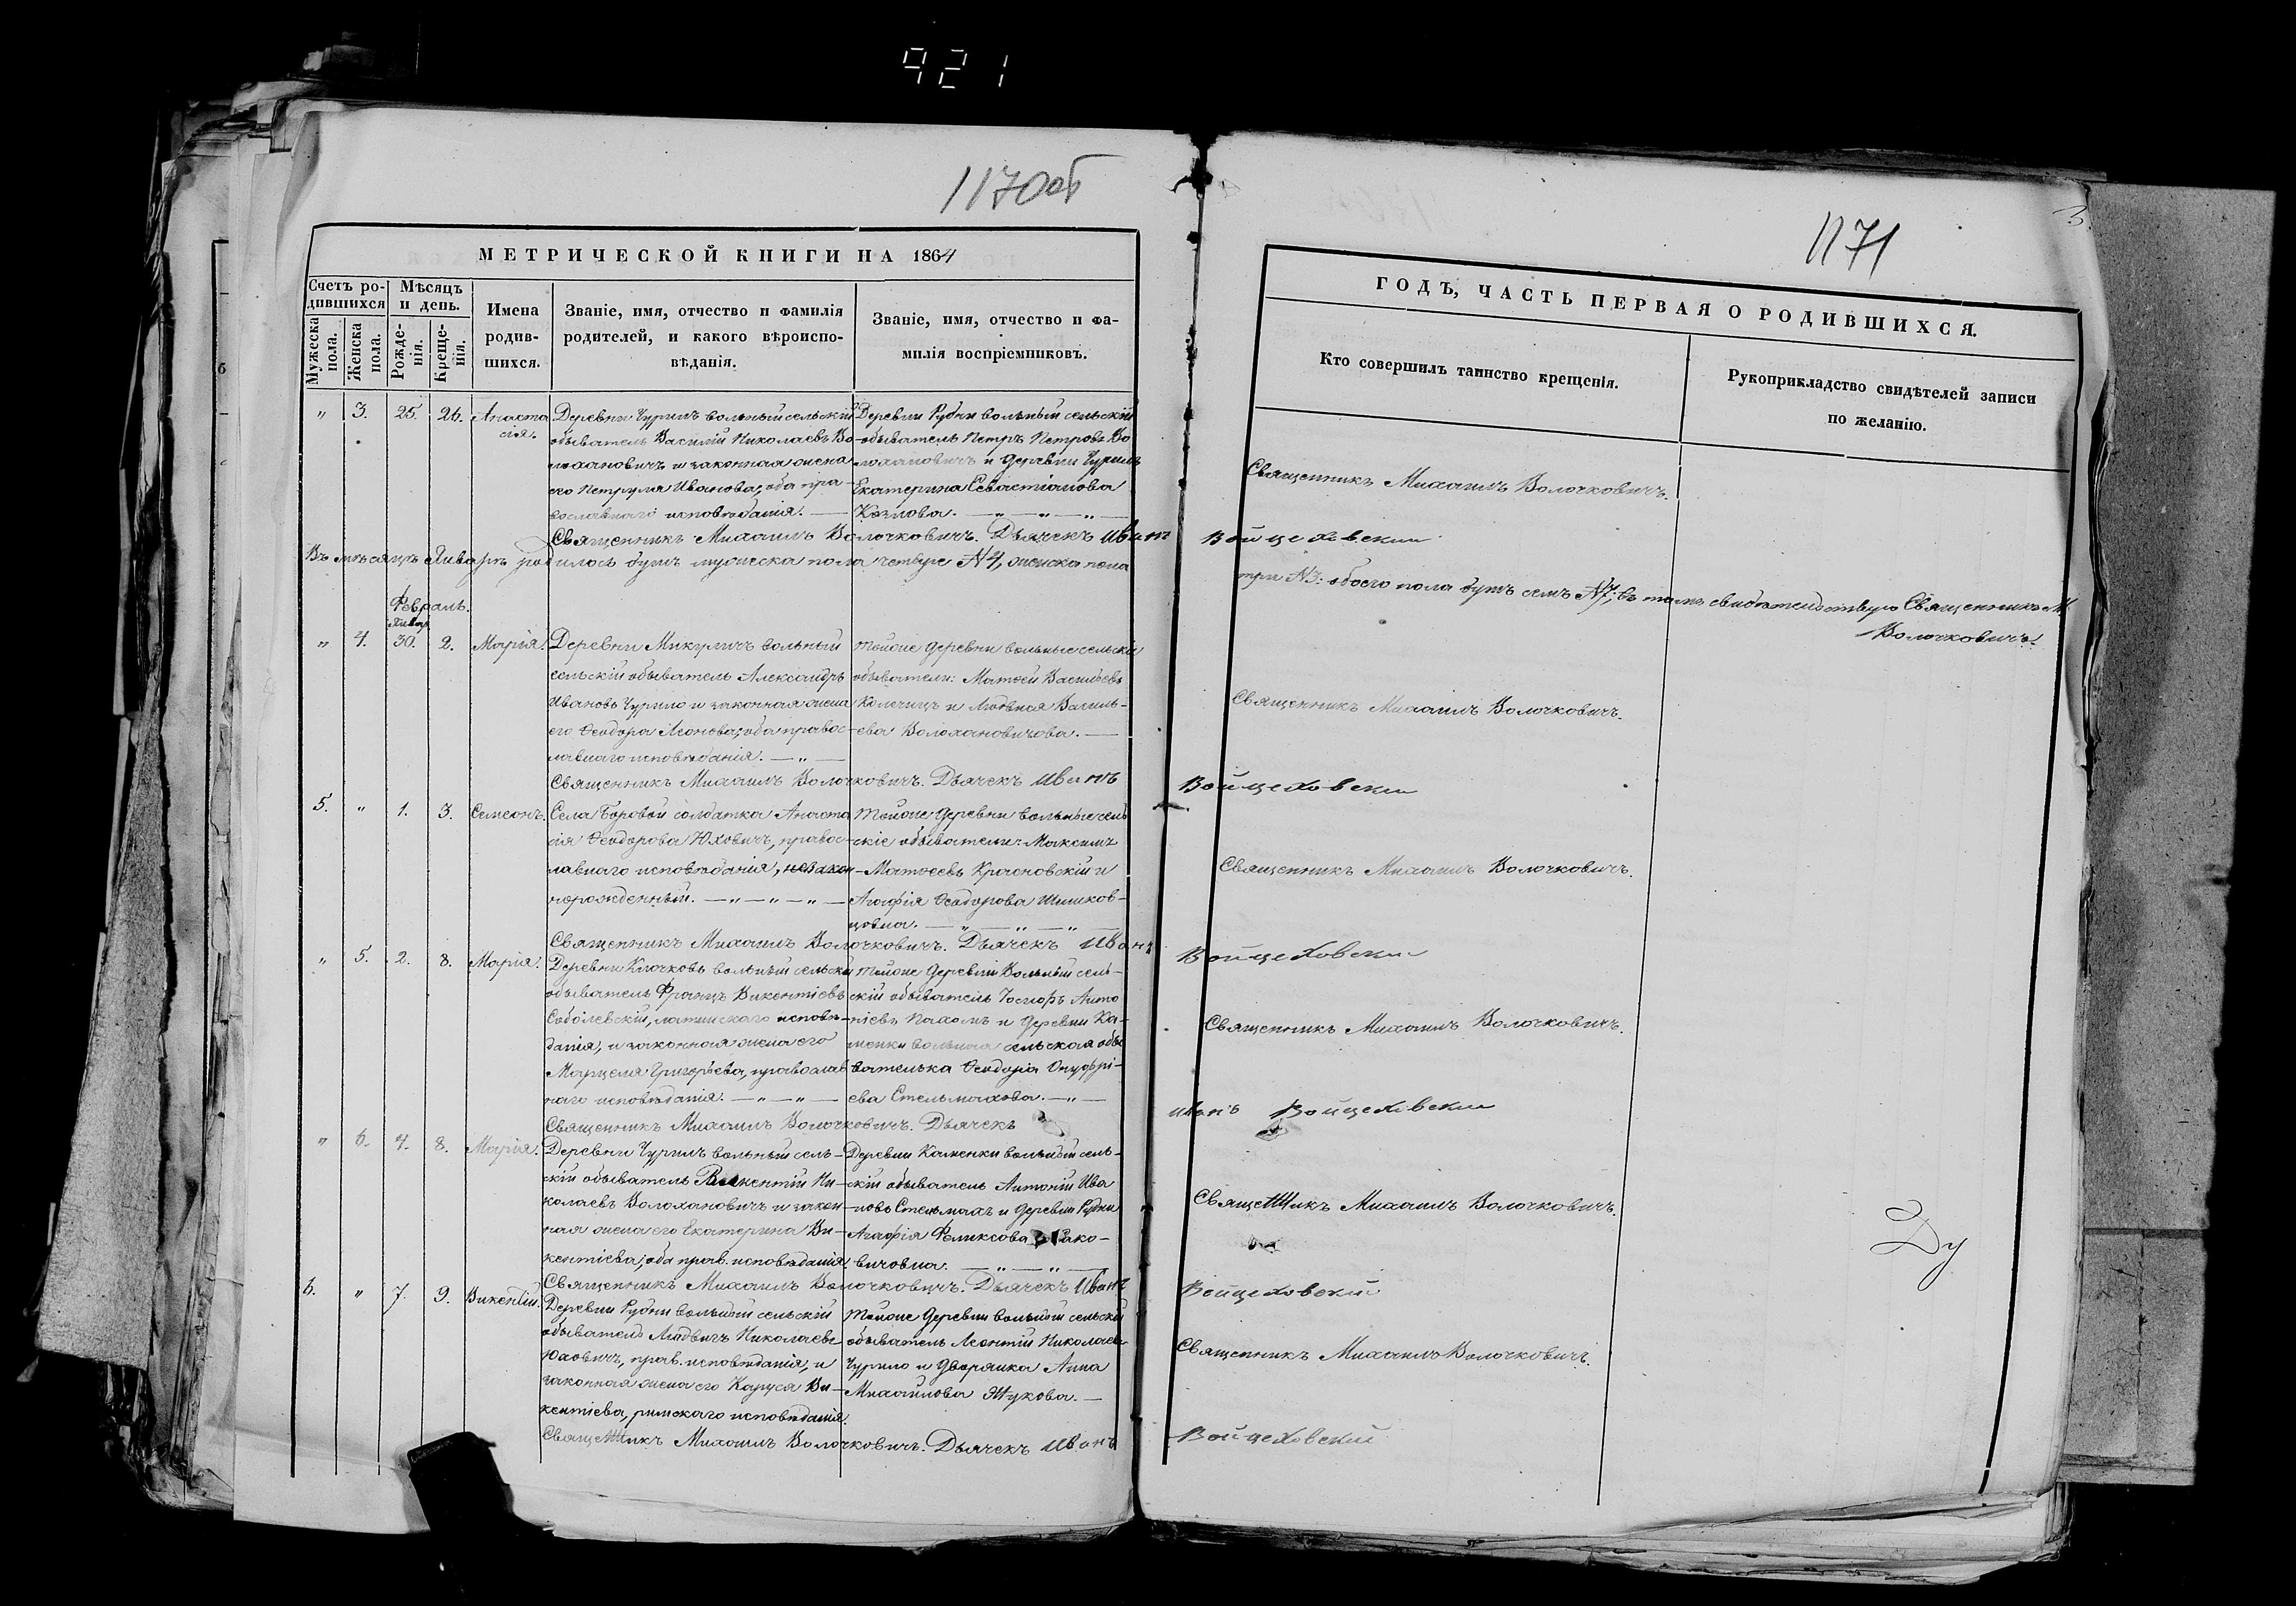 921
1170об
МЕТРИЧЕСКОЙ КНИГИ НА 1864
Счетъ ро-
дившихся
Мѣсяцъ
и день.
Мужеска
пола.
Женска
пола.
Рожде-
нія.
Креще-
нія.
Имена
родив-
шихся.
Званіе, имя, отчество и фамилія
родителей, и какого вѣроиспо-
вѣданія.
Званіе, имя, отчество и фа-
милія воспріемниковъ.
„ 3. 25. 26. Анаста
сія.
Деревни Чурилъ вольный сельскій
обыватель Василій Николаевъ Во-
лохановичъ и законная жена
его Петруля Иванова, оба пра-
вославнаго исповѣданія.
Деревни Рудни вольный сельскій
обыватель Петръ Петровъ Во
лохановичъ и деревни Чурилъ
Екатерина Севастіанова
Козлова. — „ — „ — „ —
Священникъ Михаилъ Волочковичъ. Дьячекъ Иванъ
Въ мѣсяцѣ Январѣ родилось душъ мужеска пола четыре №4, женска пола
Февраль.
Январ
„ 4. 30. 2. Марія.
Деревни Микуличъ вольный
сельскій обыватель Александръ
Ивановъ Чурило и законная жена
его Ѳеодора Леонова, оба правос-
лавнаго исповѣданія. — „ —
тойже деревни вольные сельскіе
обыватели: Матѳей Васильевъ
и Людвика Василь-
ева Волохановичова. —
Священникъ Михаилъ Волочковичъ. Дьячекъ Иванъ
5. „ 1. 3. Семеонъ.
Села Боровой солдатка Анаста
сія Ѳеодорова Юховичъ, правос-
лавнаго исповѣданія, незакон-
норожденный. — „ — „ — „ —
тойже деревни вольные сель
скіе обыватели: Максимъ
Матѳеевъ Красновскій и
Агафія Ѳеодорова Шишков-
цовна. — „ — „ — „ —
Священникъ Михаилъ Волочковичъ. Дьячекъ Иванъ
„ 5. 2. 8. Марія.
Деревни Клочковъ вольный сельскій
обыватель Францъ Викентіевъ
Соболевскій, латинскаго исповѣ-
данія, и законная жена его
Марцеля Григорьева, православ
наго исповѣданія. — „ — „ —
тойже деревни вольный сель-
скій обыватель Іосифъ Анто
ніевъ Пахомъ и деревни Ка-
менки вольная сельская обы
вателька Ѳеодора Онуфрі-
ева Стельмахова. — „ —
Священникъ Михаилъ Волочковичъ. Дьячекъ
„ 6. 4. 8. Марія.
Деревни Чурилъ вольный сель-
скій обыватель Викентій Ни-
колаевъ Волохановичъ и закон-
ная жена его Екатерина Ви-
кентіева, оба прав. исповѣданія.
Деревни Каменки вольный сель-
скій обыватель Антоній Ива
новъ Стельмахъ и деревни Рудни
Агафія Феликсова
вичовна. — „ — „ —
Священникъ Михаилъ Волочковичъ. Дьячекъ Иванъ
6. „ 7. 9. Викентій.
Деревни Рудни вольный сельскій
обыватель Людвигъ Николаевъ
Юховичъ, прав. исповѣданія, и
законная жена его Каруся Ви-
кентіева, римскаго исповѣданія.
тойже деревни вольный сельскій
обыватель Леонтій Николаевъ
Чурило и дворянка Анна
Михайлова Жукова. —
Священникъ Михаилъ Волочковичъ. Дьячекъ Иванъ
3
1171
ГОДЪ, ЧАСТЬ ПЕРВАЯ О РОДИВШИХСЯ.
Кто совершилъ таинство крещенія.
Рукоприкладство свидѣтелей записи
по желанію.
Священникъ Михаилъ Волочковичъ.
Войцеховскій
три №3: обоего пола душъ семь №7; въ томъ свидѣтельствую Священникъ М
Волочковичъ.
Священникъ Михаилъ Волочковичъ.
Войцеховскій
Священникъ Михаилъ Волочковичъ.
Войцеховскій
Священникъ Михаилъ Волочковичъ.
Иванъ Войцеховскій
Священникъ Михаилъ Волочковичъ.
Ду
Войцеховскій
Священникъ Михаилъ Волочковичъ.
Войцеховскій